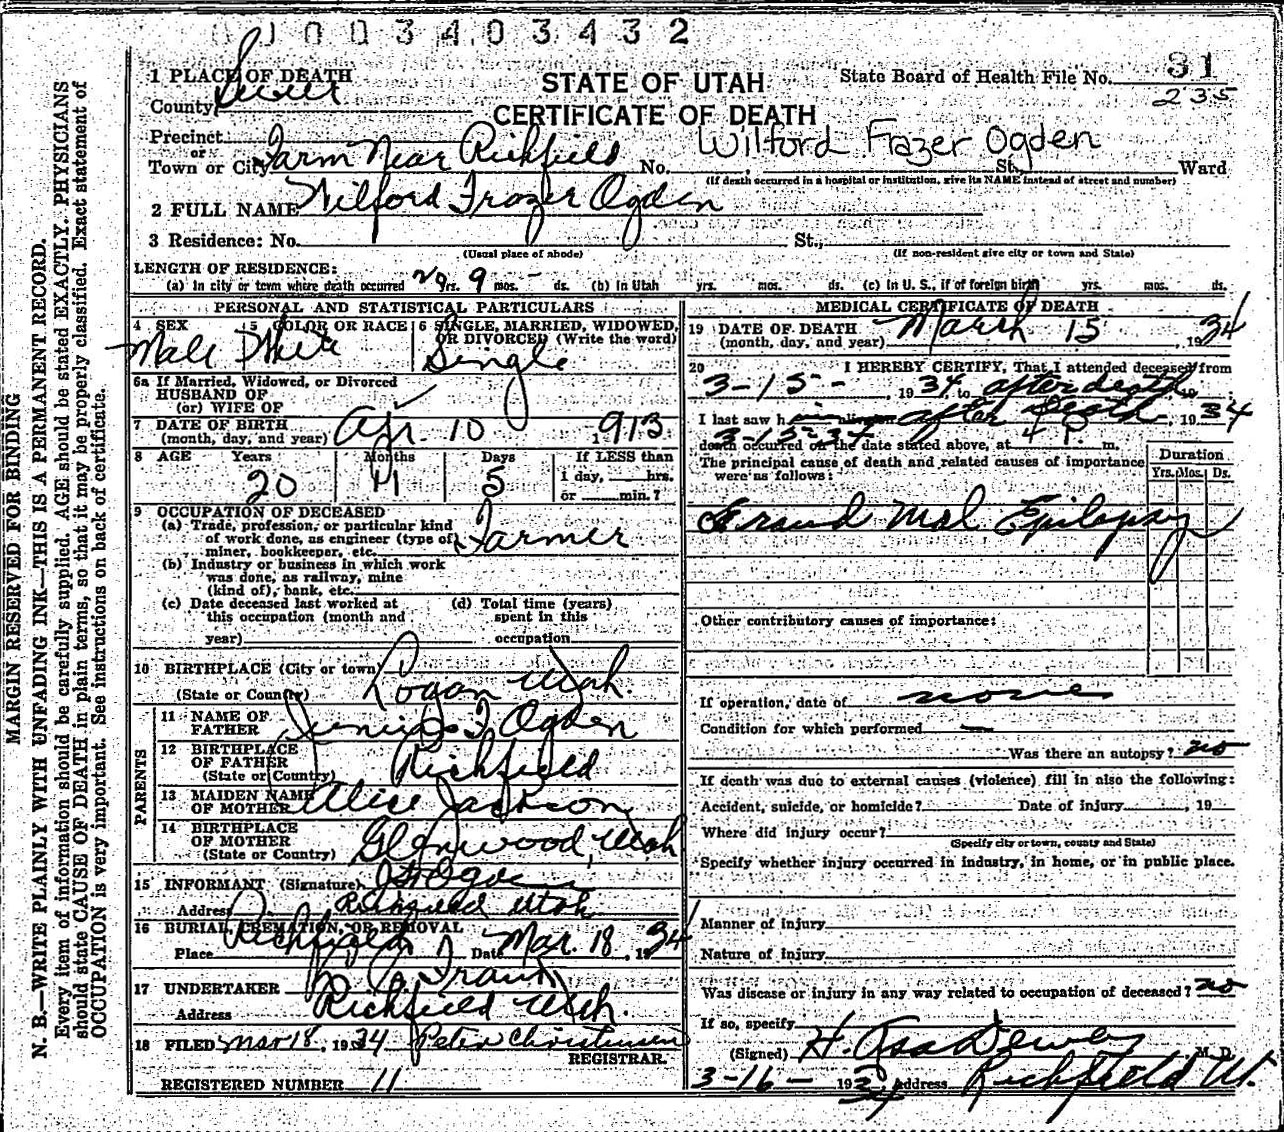 0 1 0 0 3 4 0 3 4 3 2
1 PLACE OF DEATH
STATE OF UTAH
CERTIFICATE OF DEATH
State Board of Health File No. 31
235
County Sevier
Precinct
or
Town or City Farm Near Richfield No. St., Ward
Wilford Frazer Ogden
(If death occurred in a hospital or institution, give its NAME instead of street and number)
2 FULL NAME Wilford Frazer Ogden
3 Residence: No. St.,
(Usual place of abode) (If non-resident give city or town and State)
LENGTH OF RESIDENCE:
(a) In city or town where death occurred yrs. 9 mos. - ds. (b) In Utah yrs. mos. ds. (c) In U. S., if of foreign birth yrs. mos. ds.
PERSONAL AND STATISTICAL PARTICULARS
4 SEX 5 COLOR OR RACE 6 SINGLE, MARRIED, WIDOWED, OR DIVORCED (Write the word)
Male White Single
6a If Married, Widowed, or Divorced
HUSBAND OF
(or) WIFE OF
7 DATE OF BIRTH
(month, day, and year) Apr. 10 1913
8 AGE Years Months Days If LESS than
20 11 5 1 day, hrs.
or min.?
9 OCCUPATION OF DECEASED
(a) Trade, profession, or particular kind
of work done, as engineer (type of) Farmer
miner, bookkeeper, etc.
(b) Industry or business in which work
was done, as railway, mine
(kind of), bank, etc.
(c) Date deceased last worked at (d) Total time (years)
this occupation (month and spent in this
year) occupation
10 BIRTHPLACE (City or town)
(State or Country) Logan Utah.
PARENTS
11 NAME OF
FATHER Junius F Ogden
12 BIRTHPLACE
OF FATHER Richfield
(State or Country)
13 MAIDEN NAME
OF MOTHER Alice Jackson
14 BIRTHPLACE
OF MOTHER Glenwood, Utah
(State or Country)
15 INFORMANT (Signature) Ogden
Address Richfield Utah
16 BURIAL, CREMATION, OR REMOVAL
Place Richfield Date Mar. 18, 1934
17 UNDERTAKER
Address Richfield Utah.
18 FILED Mar 18, 1934 Peter Christensen
REGISTRAR.
REGISTERED NUMBER 11
MEDICAL CERTIFICATE OF DEATH
19 DATE OF DEATH
(month, day, and year) March 15, 1934
20 I HEREBY CERTIFY, That I attended deceased from
3-15-, 1934, to after death, 19
I last saw him alive on after Death, 1934
3-15-34
death occurred on the date stated above, at 4 P. m.
The principal cause of death and related causes of importance
were as follows:
Duration
Yrs. Mos. Ds.
Grand Mal Epilepsy
Other contributory causes of importance:
If operation, date of none
Condition for which performed —
Was there an autopsy? no
If death was due to external causes (violence) fill in also the following:
Accident, suicide, or homicide? Date of injury , 19
Where did injury occur?
(Specify city or town, county and State)
Specify whether injury occurred in industry, in home, or in public place.
Manner of injury
Nature of injury
Was disease or injury in any way related to occupation of deceased? no
If so, specify
(Signed) H. Asa Dewey M. D.
3-16- 1934 Address Richfield Ut.
MARGIN RESERVED FOR BINDING
N. B.—WRITE PLAINLY WITH UNFADING INK—THIS IS A PERMANENT RECORD.
Every item of information should be carefully supplied. AGE should be stated EXACTLY. PHYSICIANS
should state CAUSE OF DEATH in plain terms, so that it may be properly classified. Exact statement of
OCCUPATION is very important. See instructions on back of certificate.